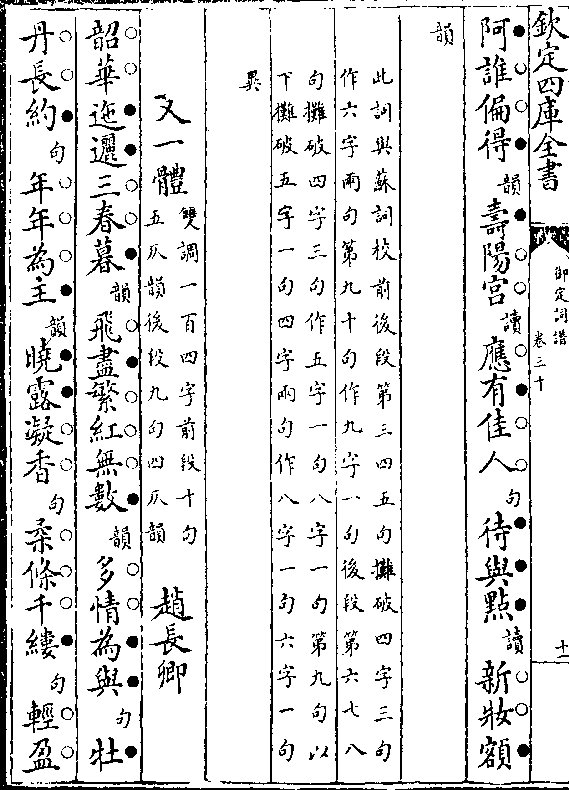 欽定四庫全書
御定詞譜
卷三十
十一
阿誰偏得韻壽陽宮讀應有佳人句待與點讀新妝額
韻
此詞與蘇詞校前後段第三四五句攤破四字三句
作六字兩句第九十句作九字一句後段第六七八
句攤破四字三句作五字一句八字一句第九句以
下攤破五字一句四字兩句作八字一句六字一句
異
又一體雙調一百四字前段十句
五仄韻後段九句四仄韻
趙長卿
韶華迤邐三春暮韻飛盡繁紅無數韻多情為與句牡
丹長約句年年為主韻曉露凝香句柔條千縷句輕盈